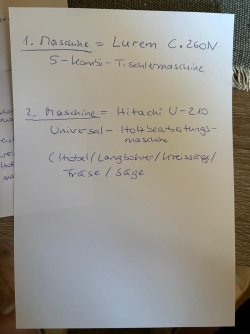 1. Maschine = Lurem C.260N
5-Kombi-Tischlermaschine
2. Maschine = Hitachi U-210
Universal-Holzbearbeitungs-
maschine
(Hobel/Langbohrer/Kreissäge/
Fräse/Säge